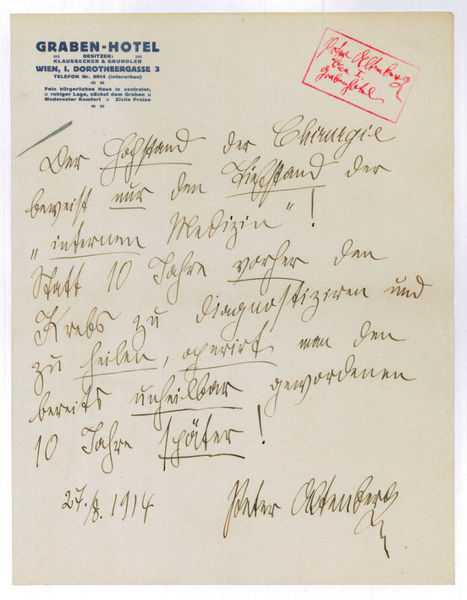 GRABEN-HOTEL
BESITZER:
KLAUSSECKER & GRUNDLER
WIEN, I. DOROTHEERGASSE 3
TELEFON Nr. 8614 (interurban)
Fein bürgerliches Haus in zentraler,
ruhiger Lage, nächst dem Graben
Modernster Komfort Zivile Preise
Peter Altenberg
Wien I.
Grabenhotel
Der Hochstand der Chirurgie
beweist nur den Tiefstand der
„internen Medizin“!
Statt 10 Jahre vorher den
Krebs zu diagnostiziren und
zu heilen, operirt man den
bereits unheilbar gewordenen
10 Jahre später!
27./8. 1914 Peter Altenberg